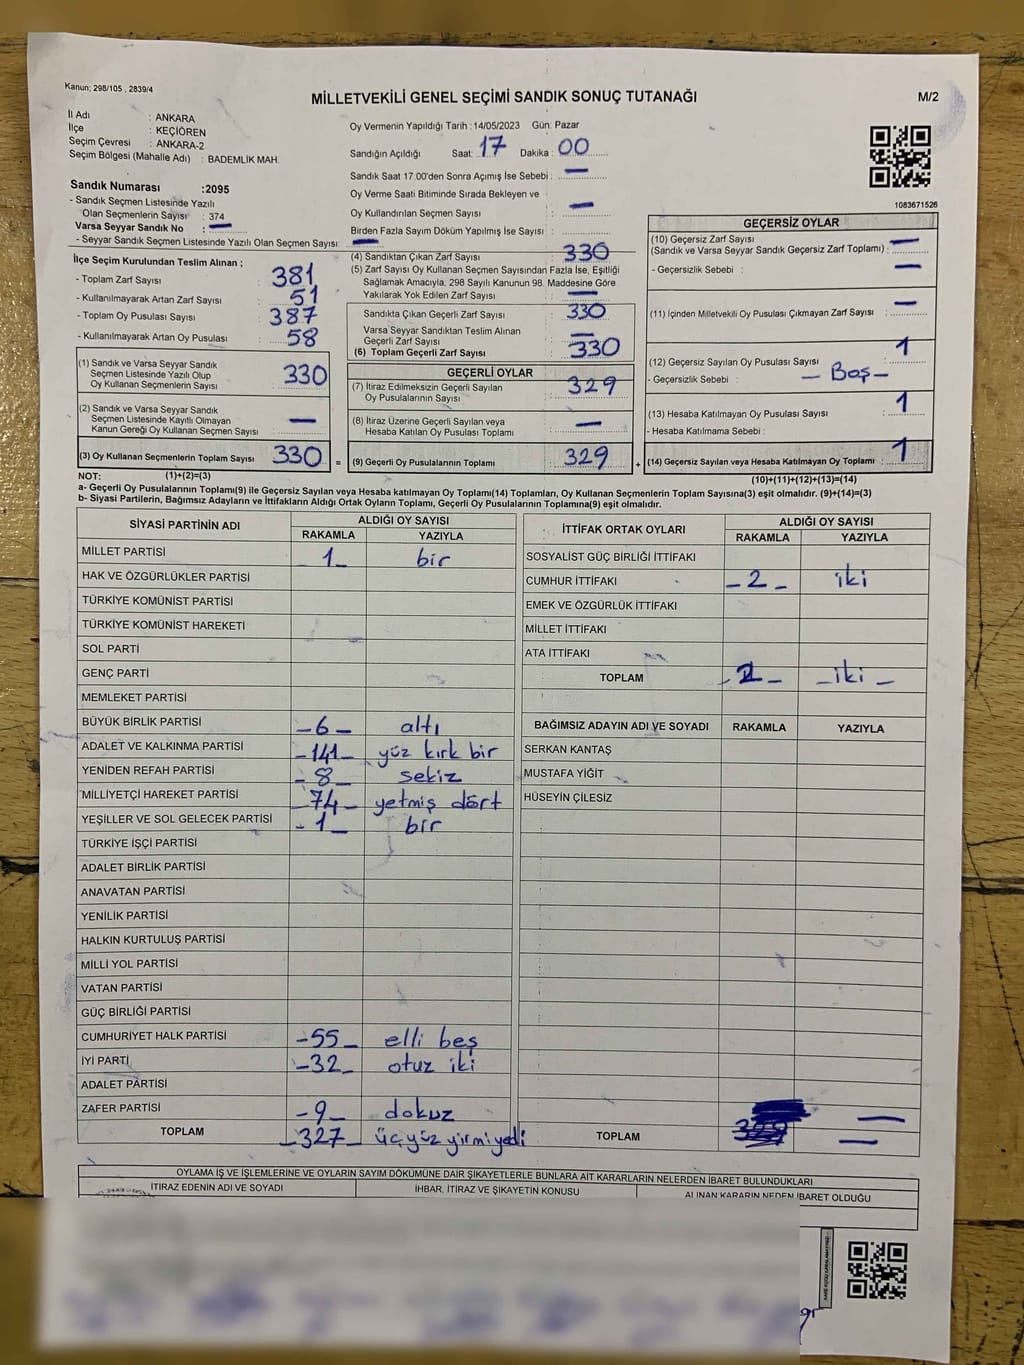 Kanun; 298/105 , 2839/4
MİLLETVEKİLİ GENEL SEÇİMİ SANDIK SONUÇ TUTANAĞI
M/2
İl Adı : ANKARA
İlçe : KEÇİÖREN
Seçim Çevresi : ANKARA-2
Seçim Bölgesi (Mahalle Adı) : BADEMLİK MAH.
Sandık Numarası :2095
- Sandık Seçmen Listesinde Yazılı
Olan Seçmenlerin Sayısı : 374
Varsa Seyyar Sandık No : —
- Seyyar Sandık Seçmen Listesinde Yazılı Olan Seçmen Sayısı: —
Oy Vermenin Yapıldığı Tarih :14/05/2023 Gün: Pazar
Sandığın Açıldığı Saat: 17 Dakika : 00
Sandık Saat 17:00'den Sonra Açımış İse Sebebi : —
Oy Verme Saati Bitiminde Sırada Bekleyen ve
Oy Kullandırılan Seçmen Sayısı : —
Birden Fazla Sayım Döküm Yapılmış İse Sayısı :
1083671526
İlçe Seçim Kurulundan Teslim Alınan ;
- Toplam Zarf Sayısı : 381
- Kullanılmayarak Artan Zarf Sayısı : 51
- Toplam Oy Pusulası Sayısı : 387
- Kullanılmayarak Artan Oy Pusulası : 58
(1) Sandık ve Varsa Seyyar Sandık
Seçmen Listesinde Yazılı Olup
Oy Kullanan Seçmenlerin Sayısı : 330
(2) Sandık ve Varsa Seyyar Sandık
Seçmen Listesinde Kayıtlı Olmayan
Kanun Gereği Oy Kullanan Seçmen Sayısı : —
(3) Oy Kullanan Seçmenlerin Toplam Sayısı : 330 =
(4) Sandıktan Çıkan Zarf Sayısı : 330
(5) Zarf Sayısı Oy Kullanan Seçmen Sayısından Fazla İse, Eşitliği
Sağlamak Amacıyla, 298 Sayılı Kanunun 98. Maddesine Göre
Yakılarak Yok Edilen Zarf Sayısı : —
Sandıkta Çıkan Geçerli Zarf Sayısı : 330
Varsa Seyyar Sandıktan Teslim Alınan
Geçerli Zarf Sayısı : —
(6) Toplam Geçerli Zarf Sayısı : 330
GEÇERLİ OYLAR
(7) İtiraz Edilmeksizin Geçerli Sayılan
Oy Pusulalarının Sayısı : 329
(8) İtiraz Üzerine Geçerli Sayılan veya
Hesaba Katılan Oy Pusulası Toplamı : —
(9) Geçerli Oy Pusulalarının Toplamı : 329 +
GEÇERSİZ OYLAR
(10) Geçersiz Zarf Sayısı
(Sandık ve Varsa Seyyar Sandık Geçersiz Zarf Toplamı) : —
- Geçersizlik Sebebi : —
(11) İçinden Milletvekili Oy Pusulası Çıkmayan Zarf Sayısı : —
(12) Geçersiz Sayılan Oy Pusulası Sayısı : 1
- Geçersizlik Sebebi : — Boş —
(13) Hesaba Katılmayan Oy Pusulası Sayısı : 1
- Hesaba Katılmama Sebebi :
(14) Geçersiz Sayılan veya Hesaba Katılmayan Oy Toplamı : 1
NOT: (1)+(2)=(3)
(10)+(11)+(12)+(13)=(14)
a- Geçerli Oy Pusulalarının Toplamı(9) ile Geçersiz Sayılan veya Hesaba katılmayan Oy Toplamı(14) Toplamları, Oy Kullanan Seçmenlerin Toplam Sayısına(3) eşit olmalıdır. (9)+(14)=(3)
b- Siyasi Partilerin, Bağımsız Adayların ve İttifakların Aldığı Ortak Oyların Toplamı, Geçerli Oy Pusulalarının Toplamına(9) eşit olmalıdır.
SİYASİ PARTİNİN ADI ALDIĞI OY SAYISI
RAKAMLA YAZIYLA
MİLLET PARTİSİ 1 bir
HAK VE ÖZGÜRLÜKLER PARTİSİ
TÜRKİYE KOMÜNİST PARTİSİ
TÜRKİYE KOMÜNİST HAREKETİ
SOL PARTİ
GENÇ PARTİ
MEMLEKET PARTİSİ
BÜYÜK BİRLİK PARTİSİ –6– altı
ADALET VE KALKINMA PARTİSİ –141– yüz kırk bir
YENİDEN REFAH PARTİSİ –8– sekiz
MİLLİYETÇİ HAREKET PARTİSİ –74– yetmiş dört
YEŞİLLER VE SOL GELECEK PARTİSİ –1– bir
TÜRKİYE İŞÇİ PARTİSİ
ADALET BİRLİK PARTİSİ
ANAVATAN PARTİSİ
YENİLİK PARTİSİ
HALKIN KURTULUŞ PARTİSİ
MİLLİ YOL PARTİSİ
VATAN PARTİSİ
GÜÇ BİRLİĞİ PARTİSİ
CUMHURİYET HALK PARTİSİ –55– elli beş
İYİ PARTİ –32– otuz iki
ADALET PARTİSİ
ZAFER PARTİSİ –9– dokuz
TOPLAM –327– üçyüz yirmi yedi
İTTİFAK ORTAK OYLARI ALDIĞI OY SAYISI
RAKAMLA YAZIYLA
SOSYALİST GÜÇ BİRLİĞİ İTTİFAKI
CUMHUR İTTİFAKI –2– iki
EMEK VE ÖZGÜRLÜK İTTİFAKI
MİLLET İTTİFAKI
ATA İTTİFAKI
TOPLAM –2– –iki–
BAĞIMSIZ ADAYIN ADI VE SOYADI RAKAMLA YAZIYLA
SERKAN KANTAŞ
MUSTAFA YİĞİT
HÜSEYİN ÇİLESİZ
TOPLAM 329 —
OYLAMA İŞ VE İŞLEMLERİNE VE OYLARIN SAYIM DÖKÜMÜNE DAİR ŞİKAYETLERLE BUNLARA AİT KARARLARIN NELERDEN İBARET BULUNDUKLARI
İTİRAZ EDENİN ADI VE SOYADI İHBAR, İTİRAZ VE ŞİKAYETİN KONUSU ALINAN KARARIN NEDEN İBARET OLDUĞU